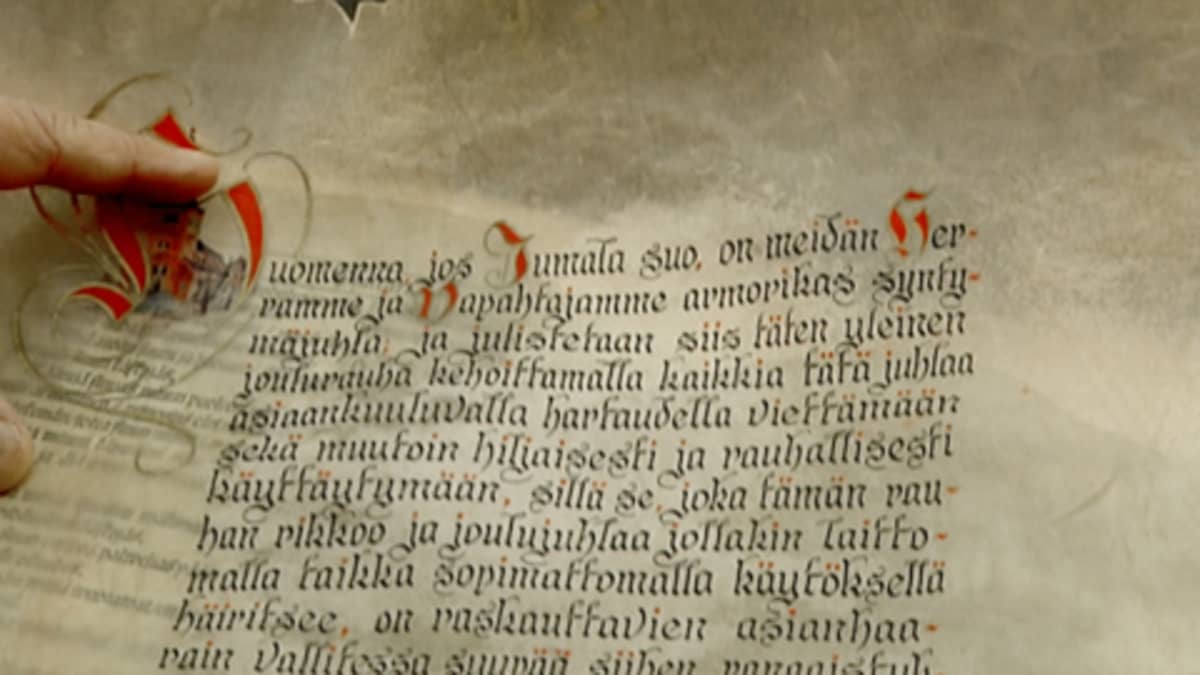 uomenna, jos Jumala suo, on meidän Her-
ramme ja Vapahtajamme armorikas synty-
mäjuhla; ja julistetaan siis täten yleinen
joulurauha kehoittamalla kaikkia tätä juhlaa
asiaankuuluvalla hartaudella viettämään
sekä muutoin hiljaisesti ja rauhallisesti
käyttäytymään, sillä se, joka tämän rau-
han rikkoo ja joulujuhlaa jollakin laitto-
malla taikka sopimattomalla käytöksellä
häiritsee, on raskauttavien asianhaa-
rain vallitessa syypää siihen rangaistuk-